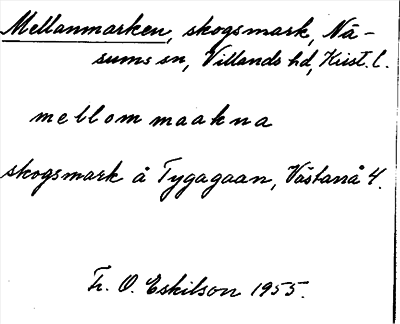 Mellanmarken, skogsmark, Nä-
sums sn, Villands hd, Krist. l.
mellommaakna
skogsmark å Tygagaan, Västanå 4.
Fr. O. Eskilson 1955.